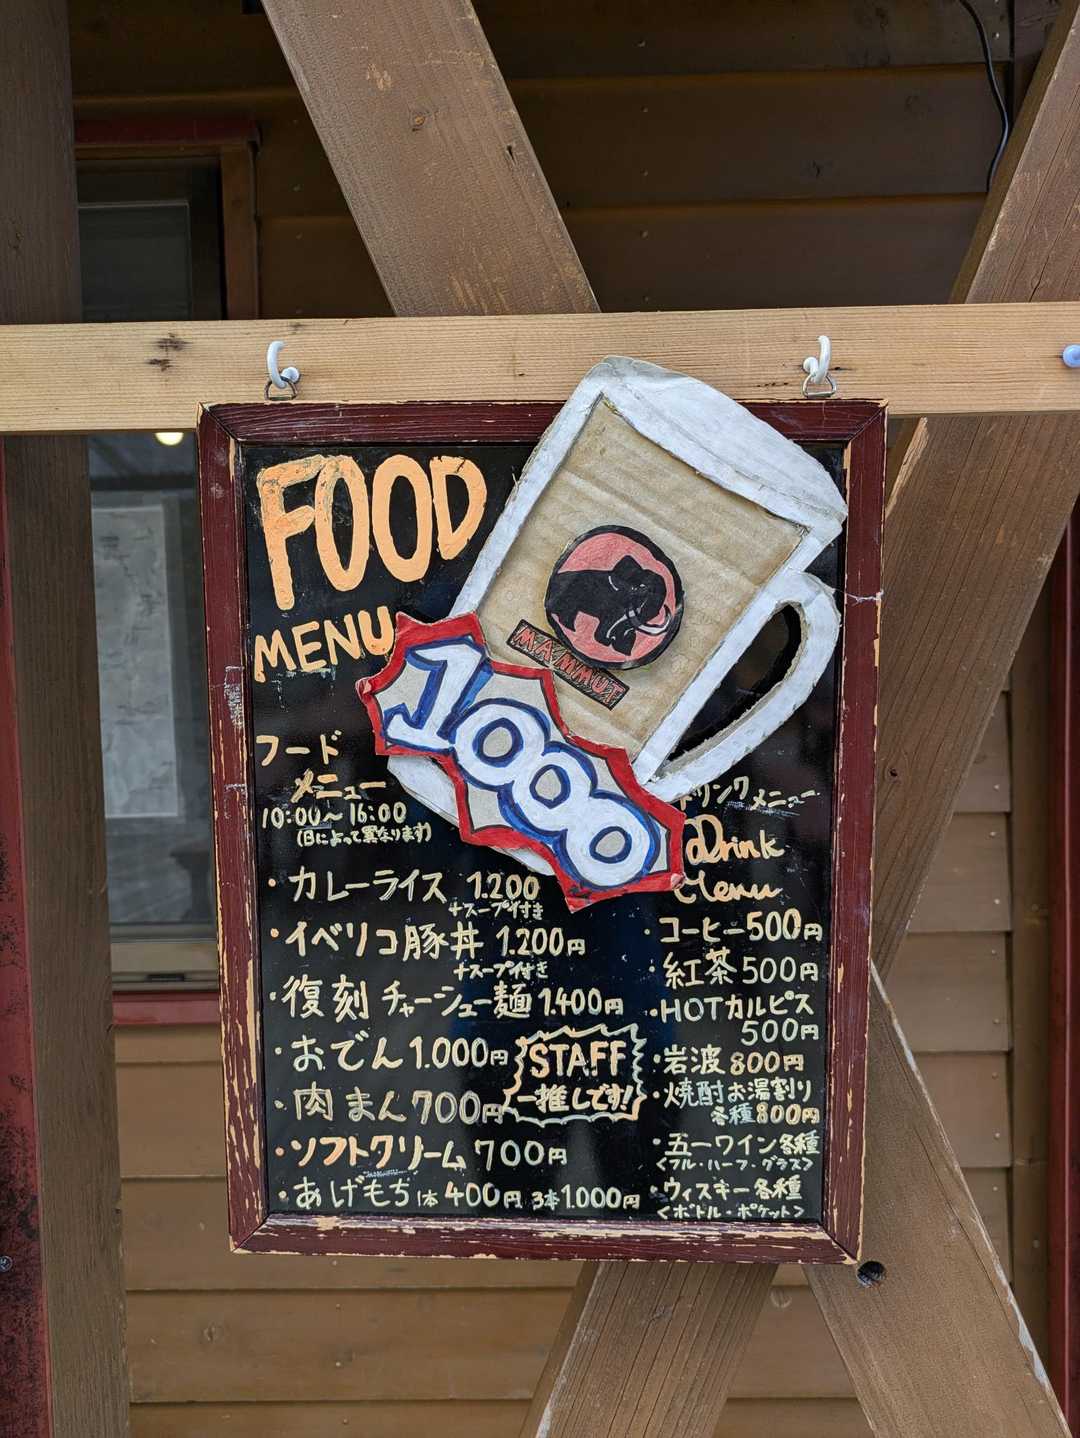 FOOD
MENU
MAMMUT
1000
フード
メニュー
10:00～16:00
(日によって異なります)
・カレーライス 1.200
+スープ付き
・イベリコ豚丼 1.200円
+スープ付き
・復刻 チャーシュー麺 1.400円
・おでん 1.000円
STAFF
一推しです!
・肉まん 700円
・ソフトクリーム 700円
・あげもち 1本 400円 3本 1.000円
ドリンクメニュー
Drink
Menu
・コーヒー 500円
・紅茶 500円
・HOTカルピス
500円
・岩波 800円
・焼酎お湯割り
各種 800円
・五一ワイン各種
<フル・ハーフ・グラス>
・ウィスキー各種
<ボトル・ポケット>